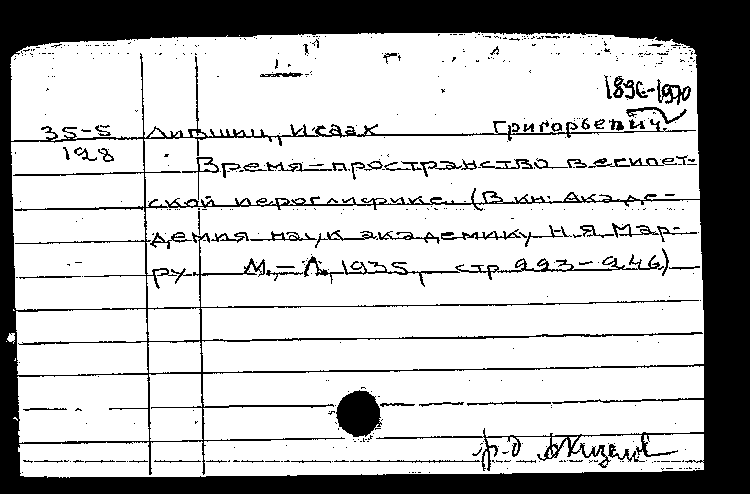 1.
1896-1970
35-5 Лившиц, Исаак Григорьевич.
198 Время-пространство в египет-
ской иероглифике. (В кн: Акаде-
демия наук академику Н.Я. Мар-
ру. М.-Л., 1935, стр 223-246)
р-д